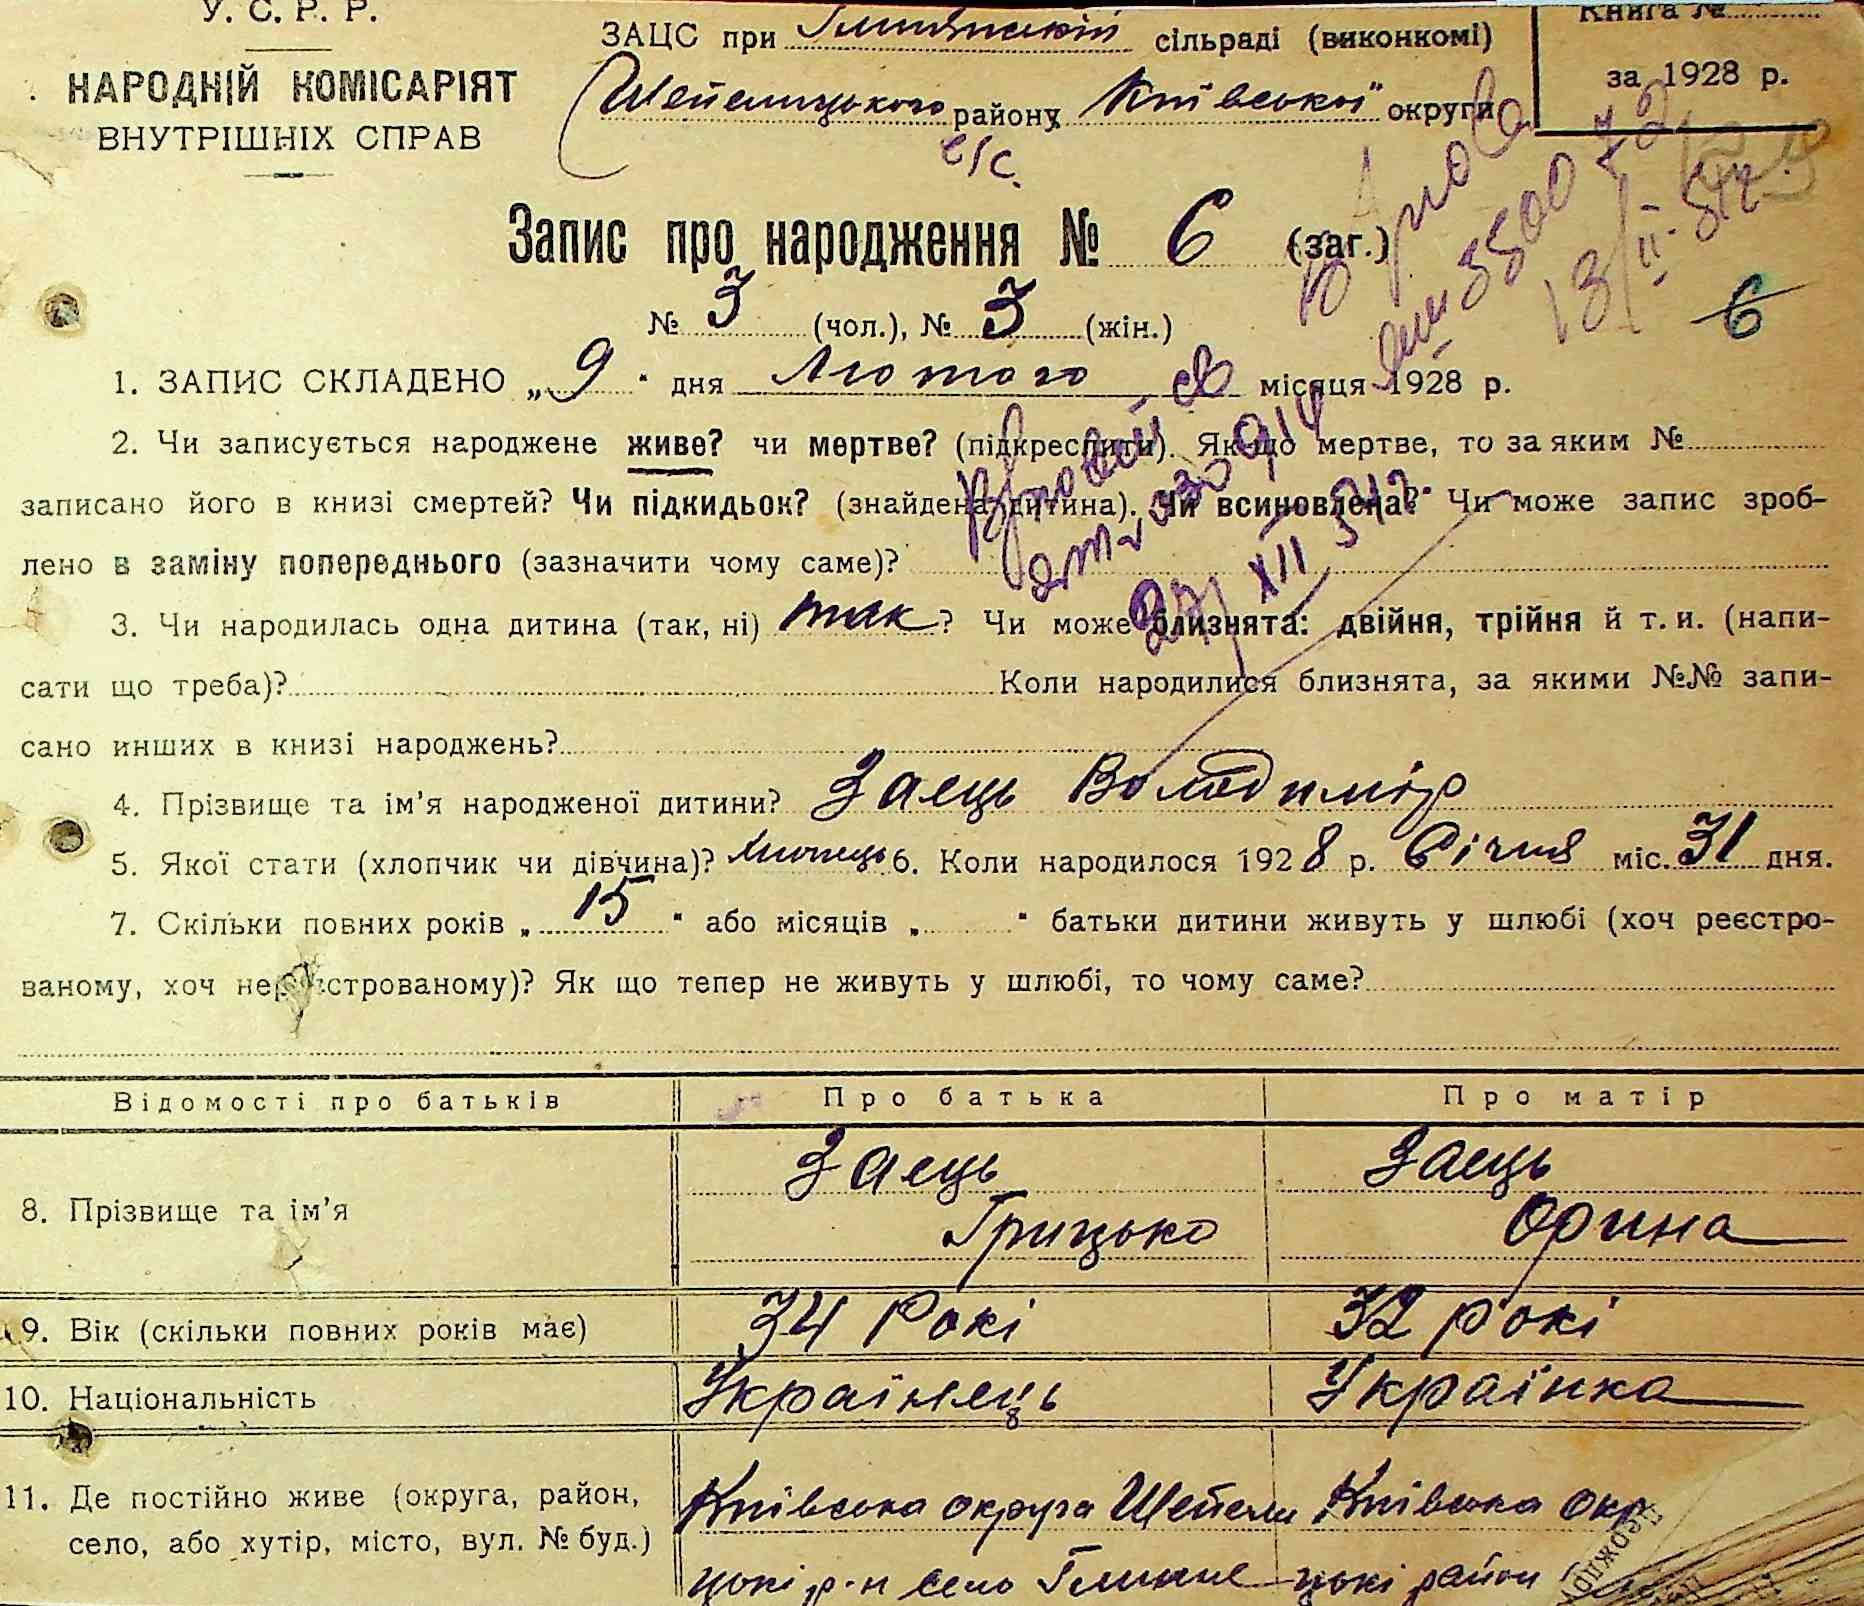 У. С. Р. Р.
НАРОДНІЙ КОМІСАРІЯТ
ВНУТРІШНІХ СПРАВ
ЗАЦС при сільраді (виконкомі)
району Київської округи
с/с.
Книга №
за 1928 р.
Запис про народження № 6 (заг.)
№ 3 (чол.), № 3 (жін.)
6
1. ЗАПИС СКЛАДЕНО „ 9 " дня Лютого місяця 1928 р.
2. Чи записується народжене живе? чи мертве? (підкреслити). Як що мертве, то за яким №
записано його в книзі смертей? Чи підкидьок? (знайдена дитина). Чи всиновлена? Чи може запис зроб-
лено в заміну попереднього (зазначити чому саме)?
3. Чи народилась одна дитина (так, ні) так ? Чи може близнята: двійня, трійня й т. и. (напи-
сати що треба)? Коли народилися близнята, за якими №№ запи-
сано инших в книзі народжень?
4. Прізвище та ім'я народженої дитини? Заєць Володимір
5. Якої стати (хлопчик чи дівчина)? Хлопець 6. Коли народилося 1928 р. Січня міс. 31 дня.
7. Скільки повних років „ 15 " або місяців „ " батьки дитини живуть у шлюбі (хоч реєстро-
ваному, хоч нереєстрованому)? Як що тепер не живуть у шлюбі, то чому саме?
Відомості про батьків Про батька Про матір
8. Прізвище та ім'я Заєць Грицько Заєць Орина
9. Вік (скільки повних років має) 34 Рокі 32 рокі
10. Національність Українець Українка
11. Де постійно живе (округа, район, Київська округа Шепели Київська окр
село, або хутір, місто, вул. № буд.) цькі р-н село цькі район